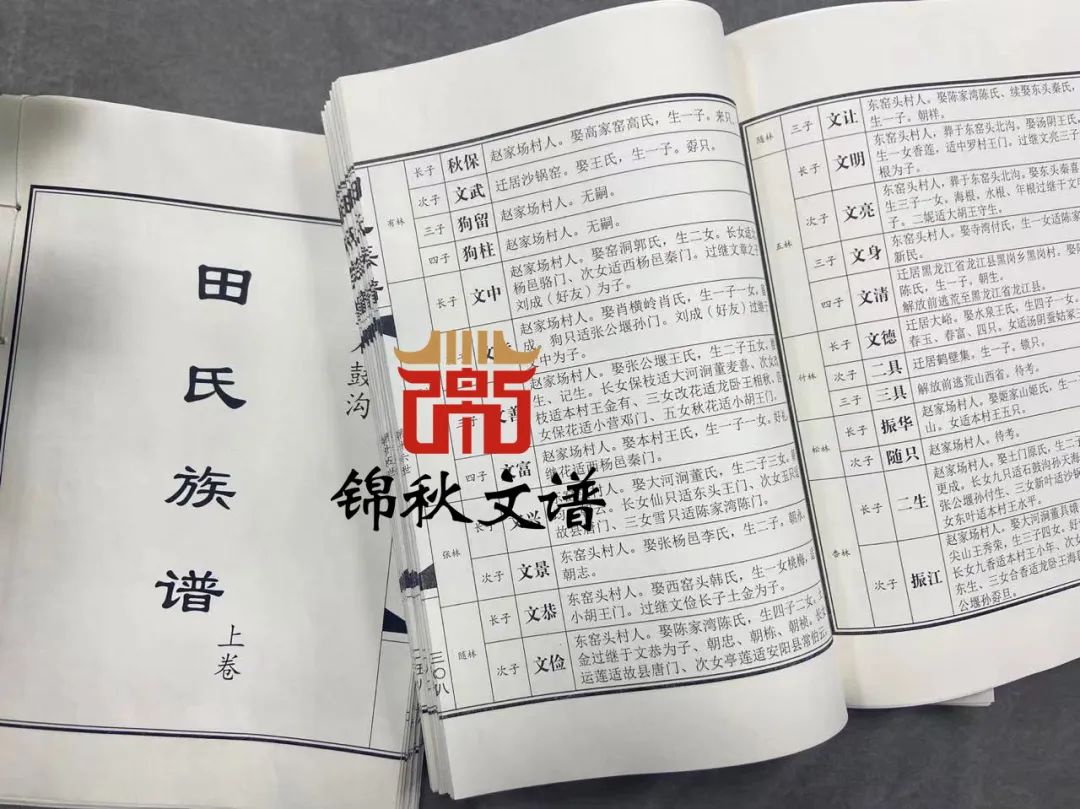 田氏族谱
上卷
鼓沟
三〇八
有林
长子 秋保 赵家场村人。娶高家窑高氏，生一子。来只。
次子 文武 迁居沙锅窑。娶王氏，生一子。孬只。
三子 狗留 赵家场村人。无嗣。
四子 狗柱 赵家场村人。无嗣。
长子 文中 赵家场村人。娶窑洞郭氏，生二女。长女适
杨邑骆门、次女适西杨邑秦门。过继文章之子
刘成（好友）为子。
赵家场村人。娶肖横岭肖氏，生一子一女，
成，狗只适张公堰孙门。刘成（好友）过继于
文中为子。
三子 文善 赵家场村人。娶张公堰王氏，生二子五女，
生、记生。长女保枝适大河涧董麦喜、次女
枝适本村王金有、三女改花适龙卧王相秋、四
女保花适小营邓门、五女秋花适小胡王门。
四子 文富 赵家场村人。娶本村王氏，生一子一女。好
继花适杨邑秦门。
张林
赵家场村人。娶大河涧董氏，生二子三女，
长女仙只适东头王门、次女
故县唐门、三女雪只适陈家湾陈门。
次子 文景 东窑头村人。娶张杨邑李氏，生二子，朝水、
朝志。
随林
长子 文恭 东窑头村人。娶西窑头韩氏，生一女桃梅，适
小胡王门。过继文俭长子土金为子。
次子 文俭 东窑头村人。娶陈家湾陈氏，生四子二女，
金过继于文恭为子、朝忠、朝栋、朝祯，长女
运莲适故县唐门、次女亭莲适安阳县常
随林 三子 文让 东窑头村人。娶陈家湾陈氏、续娶东头秦氏，
生一子。朝祥。
五林
长子 文明 东窑头村人，葬于东窑头北沟。娶汤阴王氏，
生一女香莲，适中罗村王门。过继文亮三子
根为子。
次子 文亮 东窑头村人，葬于东窑头北沟。娶东头秦喜
生三子一女。海根、水根、年根过继于文
子。二妮适大胡王守生。
三子 文身 东窑头村人。娶寺湾付氏，生一女适陈家
新民。
四子 文清 迁居黑龙江省龙江县黑岗乡黑岗村。娶
陈氏，生一子，朝生。
解放前逃荒至黑龙江省龙江县。
什林
长子 文德 迁居大峪。娶水泉王氏，生四子一女，
春玉、春富、四只。女适汤阴蚕姑
次子 二具 迁居鹤壁集。生一子。锁只。
三子 三具 解放前逃荒山西省。待考。
松林
长子 振华 赵家场村人。娶姬家山姬氏，生一子
山。女适本村王五只。
次子 随只 赵家场村人。待考。
杏林
长子 二生 赵家场村人。娶土门原氏，生二子
更成。长女九只适石鼓沟孙天海
张公堰孙付生、三女新叶适沙锅
女东叶适本村王水平。
次子 振江 赵家场村人。娶大河涧董具娥
尖山王秀荣，生三子四女。好
长女九香适本村王小年、次女
东生、三女合香适龙卧王海
公堰孙孬旦。
锦秋文谱